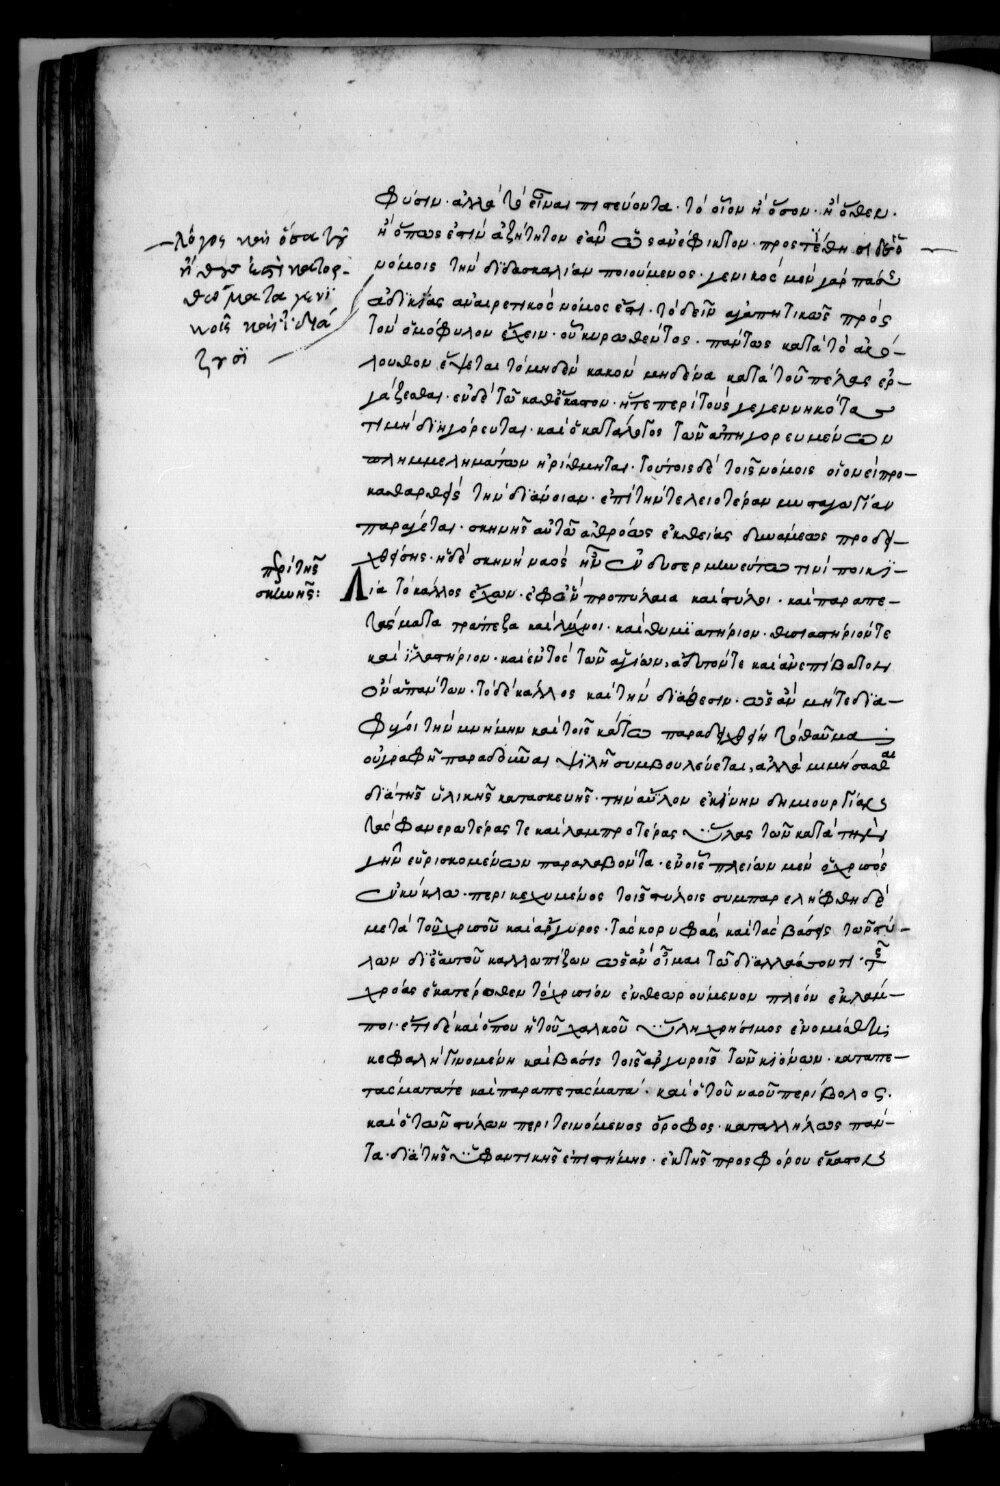 φύσιν· ἀλλὰ τὸ εἶναι πιστεύοντα· τὸ οἷον ἢ ὅσον· ἢ ὅθεν·
ἢ ὅπως ἐστὶν ἀζήτητον ἐᾶν ὡς ἀνέφικτον· προστέθη
νόμοις τὴν διδασκαλίαν ποιούμενος· γενικὸς μὲν γὰρ πάσης
ἀδικίας ἀναιρετικὸς νόμος ἐστι· τὸ δεῖν ἀγαπητικῶς πρὸς
τὸν ὁμόφυλον ἔχειν· οὗ κυρωθέντος· πάντως κατὰ τὸ ἀκό-
λουθον ἕψεται τὸ μηδὲν κακὸν μηδένα κατὰ τοῦ πέλας ἐρ-
γάζεσθαι· ἐν δὲ τῶ καθέκαστον· ἥτε περὶ τοὺς γεγεννηκότας
τιμὴ διηγόρευται· καὶ ὁ κατάλογος τῶν ἀπηγορευμένων
πλημμελημάτων ἠρίθμηται· τούτοις δὲ τοῖς νόμοις οἷονεὶ προ-
καθαρθεὶς τὴν διάνοιαν· ἐπὶ τὴν τελειοτέραν μυσταγωγίαν
παράγεται· σκηνῆς αὐτῶ ἀθρόως ἐκ θείας δυνάμεως προδει-
χθείσης· ἡ δὲ σκηνὴ ναὸς ἦν ἐν δυσερμηνεύτω τινὶ ποικι-
λία τὸ κάλλος ἔχων· ἐφ᾽ ὧν προπύλαια καὶ στύλοι· καὶ παραπε-
τάσματα τράπεζα καὶ λύχνοι· καὶ θυμιατήριον· θυσιαστήριόν τε
καὶ ἱλαστήριον· καὶ ἐντὸς τῶν ἁγίων, ἄδυτόν τε καὶ ἀνεπίβατον
ὧν ἁπάντων· τὸ δὲ κάλλος καὶ τὴν διάθεσιν· ὡς ἂν μήτε δια-
φύγοι τὴν μνήμην καὶ τοῖς κάτω παραδειχθείη τὸ θαῦμα
οὐ γραφῆ παραδοῦναι ψιλῆ συμβουλεύεται, ἀλλὰ μιμήσασθαι
διὰ τῆς ὑλικῆς κατασκευῆς· τὴν ἄϋλον ἐκείνην δημιουργίαν
τὰς φανερωτέρας τε καὶ λαμπροτέρας ὕλας τῶν κατὰ τὴν
γῆν εὑρισκομένων παραλαβόντα· ἐν οἷς πλείων μὲν ὁ χρυσὸς
ἐν κύκλω· περικεχυμένος τοῖς στύλοις συμπαρελήφθη δὲ
μετὰ τοῦ χρυσοῦ καὶ ἄργυρος· τὰς κορυφὰς καὶ τὰς βάσεις τῶν στύ-
λων δι᾽ ἑαυτοῦ καλλωπίζων ὡς ἂν οἶμαι τῶ διαλλάσσοντι τῆς
χρόας ἑκατέρωθεν τὸ χρυσίον ἐνθεωρούμενον πλέον ἐκλάμ-
ποι· ἔστι δὲ καὶ ὅπου ἡ τοῦ χαλκοῦ ὕλη χρήσιμος ἐνομίσθη
κεφαλὴ γινομένη καὶ βάσις τοῖς ἀργυροῖς τῶν κιόνων· καταπε-
τάσματάτε καὶ παραπετάσματα· καὶ ὁ τοῦ ναοῦ περίβολος·
καὶ ὁ τῶν στύλων περιτεινόμενος ὄροφος· καταλλήλως πάν-
τα· διὰ τῆς ὑφαντικῆς ἐπιστήμης· ἐκ τῆς προσφόρου ἕκαστον
λόγος καὶ ὅσα τοῦ
ἤθους ἐστὶ κατορ-
θώματα γενι
κοῖς καὶ ἰδιά
ζουσι
περὶ τῆς
σκηνῆς: